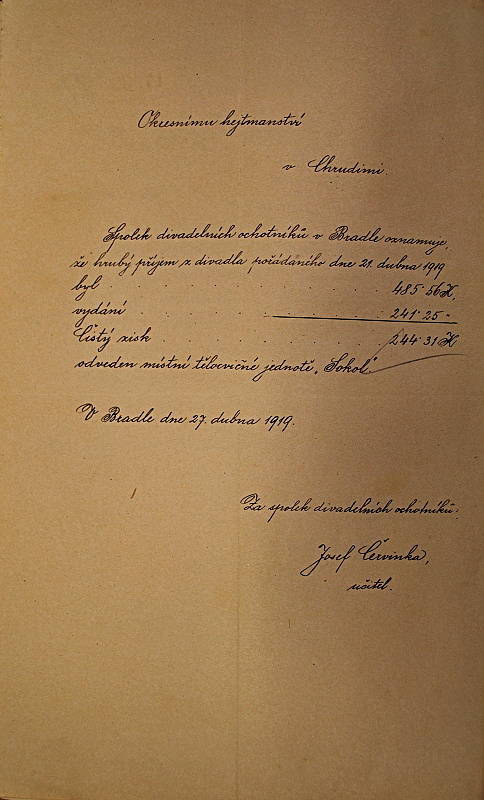 Okresnímu hejtmanství
v Chrudimi.
Spolek divadelních ochotníků v Bradle oznamuje,
že hrubý příjem z divadla pořádaného dne 21. dubna 1919
byl . . . . . . . . . . 485·56 K,
vydání . . . . . . . . 241·25 -
Čistý zisk . . . . . . . . 244·31 K
odveden místní tělocvičné jednotě „Sokol"
V Bradle dne 27. dubna 1919.
Za spolek divadelních ochotníků:
Josef Červinka,
učitel.